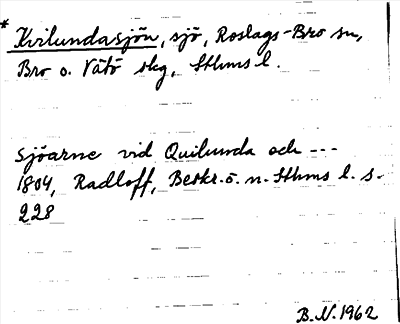 * Kvilundasjön, sjö, Roslags-Bro sn,
Bro o. Vätö skg, Sthms l.
Sjöarne vid Quilunda och ---
1804, Radloff, Beskr. ö. n. Sthms l. s.
228
B.N. 1962